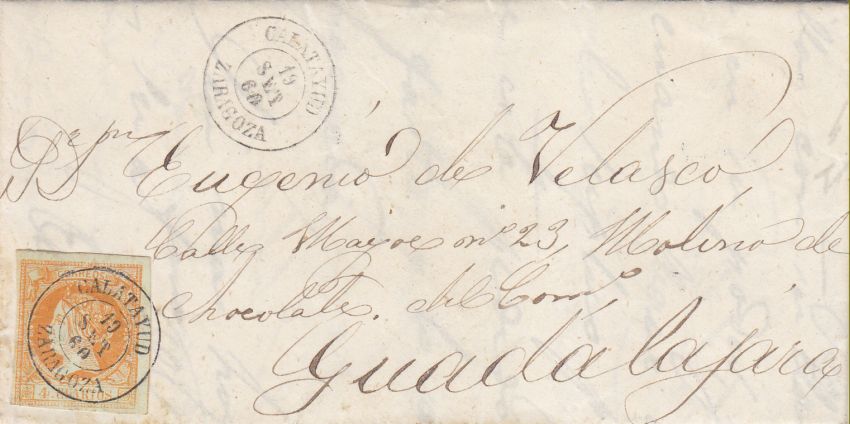 CALATAYUD
19
SET
60
ZARAGOZA
Eugenio de Velasco
Calle Mayor nº 23, Molino de
Chocolate. del Comº
Guadalajara
CORREOS
CALATAYUD
19
SET
60
ZARAGOZA
4 CUARTOS